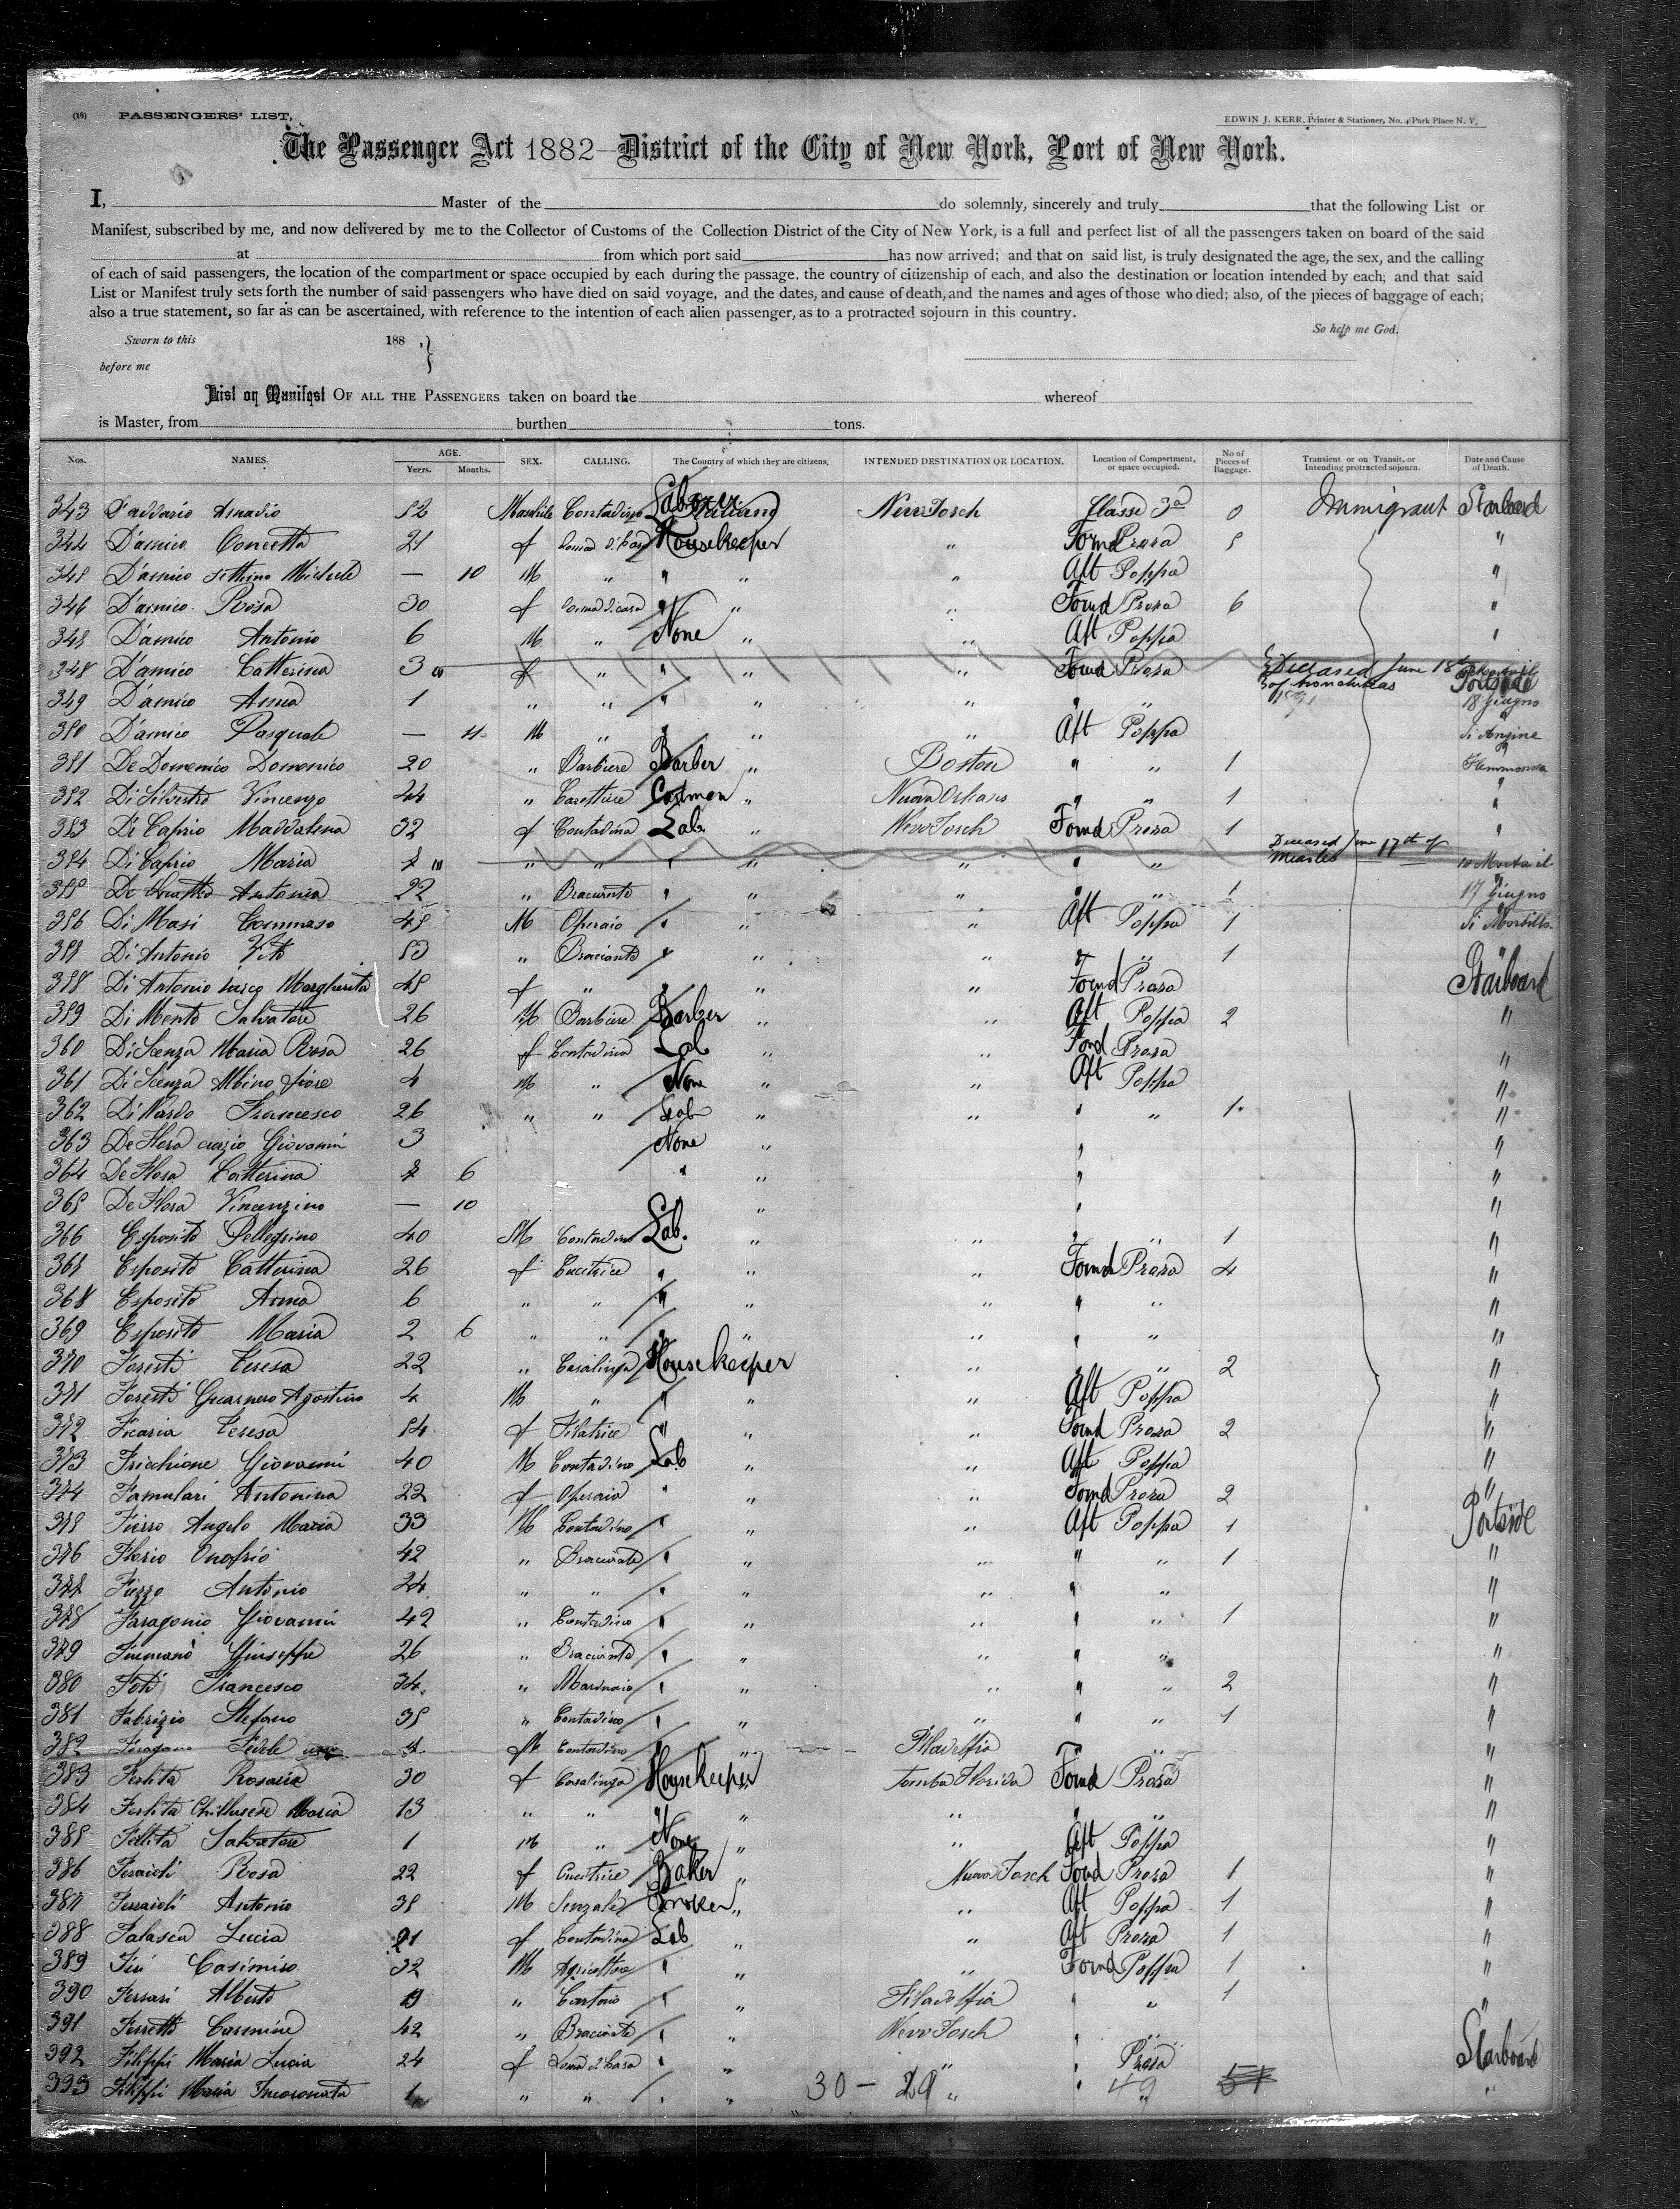 (16) PASSENGERS' LIST,
EDWIN J. KERR, Printer & Stationer, No. 4 Park Place N. Y.
The Passenger Act 1882—District of the City of New York, Port of New York.
I, Master of the do solemnly, sincerely and truly that the following List or
Manifest, subscribed by me, and now delivered by me to the Collector of Customs of the Collection District of the City of New York, is a full and perfect list of all the passengers taken on board of the said
at from which port said has now arrived; and that on said list, is truly designated the age, the sex, and the calling
of each of said passengers, the location of the compartment or space occupied by each during the passage. the country of citizenship of each, and also the destination or location intended by each; and that said
List or Manifest truly sets forth the number of said passengers who have died on said voyage, and the dates, and cause of death, and the names and ages of those who died; also, of the pieces of baggage of each;
also a true statement, so far as can be ascertained, with reference to the intention of each alien passenger, as to a protracted sojourn in this country.
So help me God.
Sworn to this 188 , }
before me
List or Manifest OF ALL THE PASSENGERS taken on board the whereof
is Master, from burthen tons.
Nos. NAMES. AGE. Years. Months. SEX. CALLING. The Country of which they are citizens. INTENDED DESTINATION OR LOCATION. Location of Compartment, or space occupied. No of Pieces of Baggage. Transient or on Transit, or Intending protracted sojourn. Date and Cause of Death.
343 D'addario Amadio 52 Maschile Contadino Laborer Italiano New Josch Classe 3a 0 Immigrant Starboard
344 D'amico Concetta 21 f Housekeeper " Forwd Prora 5 "
345 D'amico Michele — 10 M " " " " Aft Poppa "
346 D'amico Rosa 30 f Donna di casa " " " Forwd Prora 6 "
347 D'amico Antonio 6 M " None " " Aft Poppa "
348 D'amico Catterina 3 f " " " " Forwd Prora Deceased June 18th of Portside
349 D'amico Anna 1 " " " " " " " 18 Giugno
350 D'amico Pasquale — 11 M " " " " Aft Poppa di Angina
351 De Domenico Domenico 20 " Barbiere Barber " Boston " " 1
352 Di Silvestro Vincenzo 44 " Carettiere Cartman " Nuova Orleans " " 1 "
353 Di Caprio Maddalena 32 f Contadina Lab. " New Josch Forwd Prora 1 "
354 Di Caprio Maria " " " " " " " Deceased June 17th of Measles
355 Antonia 22 " Braciante " " " " " 1 17 Giugno
356 Di Masi Tommaso 45 M Operaio " " " Aft Poppa 1 di Morbillo
357 Di Antonio Vito 53 " Braciante " " " " " 1
358 Di Antonio Margherita 45 f " " " " Forwd Prora Starboard
359 Di Mento Salvatore 26 M Barbiere Barber " " Aft Poppa 2 "
360 Di Scenza Maria Rosa 26 f Contadina Lab " " Forwd Prora "
361 Di Scenza Albino fiore 4 M " None " " Aft Poppa "
362 Di Nardo Francesco 26 " " Lab " " " " 1 "
363 De Flora Giovanni 3 None " " "
364 De Flora Catterina 6 " " " "
365 De Flora Vincenzino — 10 " " "
366 Esposito Pellegrino 40 M Contadino Lab. " " " " 1 "
367 Esposito Catterina 26 f Cucitrice " " " Forwd Prora 4 "
368 Esposito Anna 6 " " " " " " " "
369 Esposito Maria 2 6 " " " " " " " "
370 Foresti Teresa 22 " Casalinga Housekeeper " " " 2 "
371 Foresti Guarnero Agostino 4 M " " " " Aft Poppa "
372 Ficaria Teresa 54 f Filatrice " " " Forwd Prora 2 "
373 Fricchione Giovanni 40 M Contadino Lab " " Aft Poppa "
374 Famulari Antonina 22 f Operaia " " " Forwd Prora 2 "
375 Fierro Angelo Maria 33 M Contadino " " " Aft Poppa 1 Portside
376 Florio Onofrio 42 " Braciante " " " " " 1 "
377 Antonio 24 " " " " " " " "
378 Faragonio Giovanni 42 " Contadino " " " " " 1 "
379 Giuseppe 26 " Braciante " " " " " "
380 Foti Francesco 34 " Marinaio " " " " " 2 "
381 Fabrizio Stefano 35 " Contadino " " " " " 1 "
382 Fedele M Contadino " " Filadelfia " " "
383 Ferlita Rosaria 30 f Casalinga Housekeeper " Tomba Florida Forwd Prora "
384 Ferlita Maria 13 " " " " " " " "
385 Fellita Salvatore 1 M " None " " Aft Poppa "
386 Feraioli Rosa 22 f Cucitrice Baker " Nuova Josch Forwd Prora 1 "
387 Ferraioli Antonio 38 M Senzale Broker " " Aft Poppa 1 "
388 Falasca Lucia 21 f Contadina Lab " " Aft Prora 1 "
389 Casimiro 32 M Agricoltore " " " Forwd Poppa 1 "
390 Ferrari Alberto 19 " " " Filadelfia " " 1 "
391 Ferretti Carmine 42 " Braciante " " New Josch " " Starboard
392 Filippi Maria Lucia 24 f " " " " Prora
393 Filippi Maria Incoronata 1 " " " " 30 — 29 " " 49 "